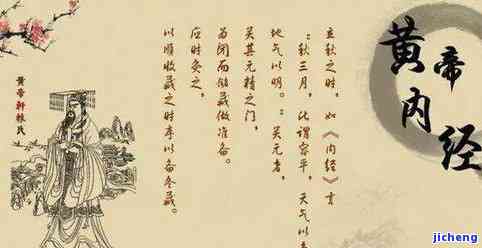 黄帝内经
立秋之时，如《内经》言
：秋三月，此谓容平，天气以急
地气以明。：关元者，
关其元精之门，
为闭而储藏做准备。
应时灸之，
以顺收藏之时序以备冬藏。
黄帝轩辕氏
jicheng